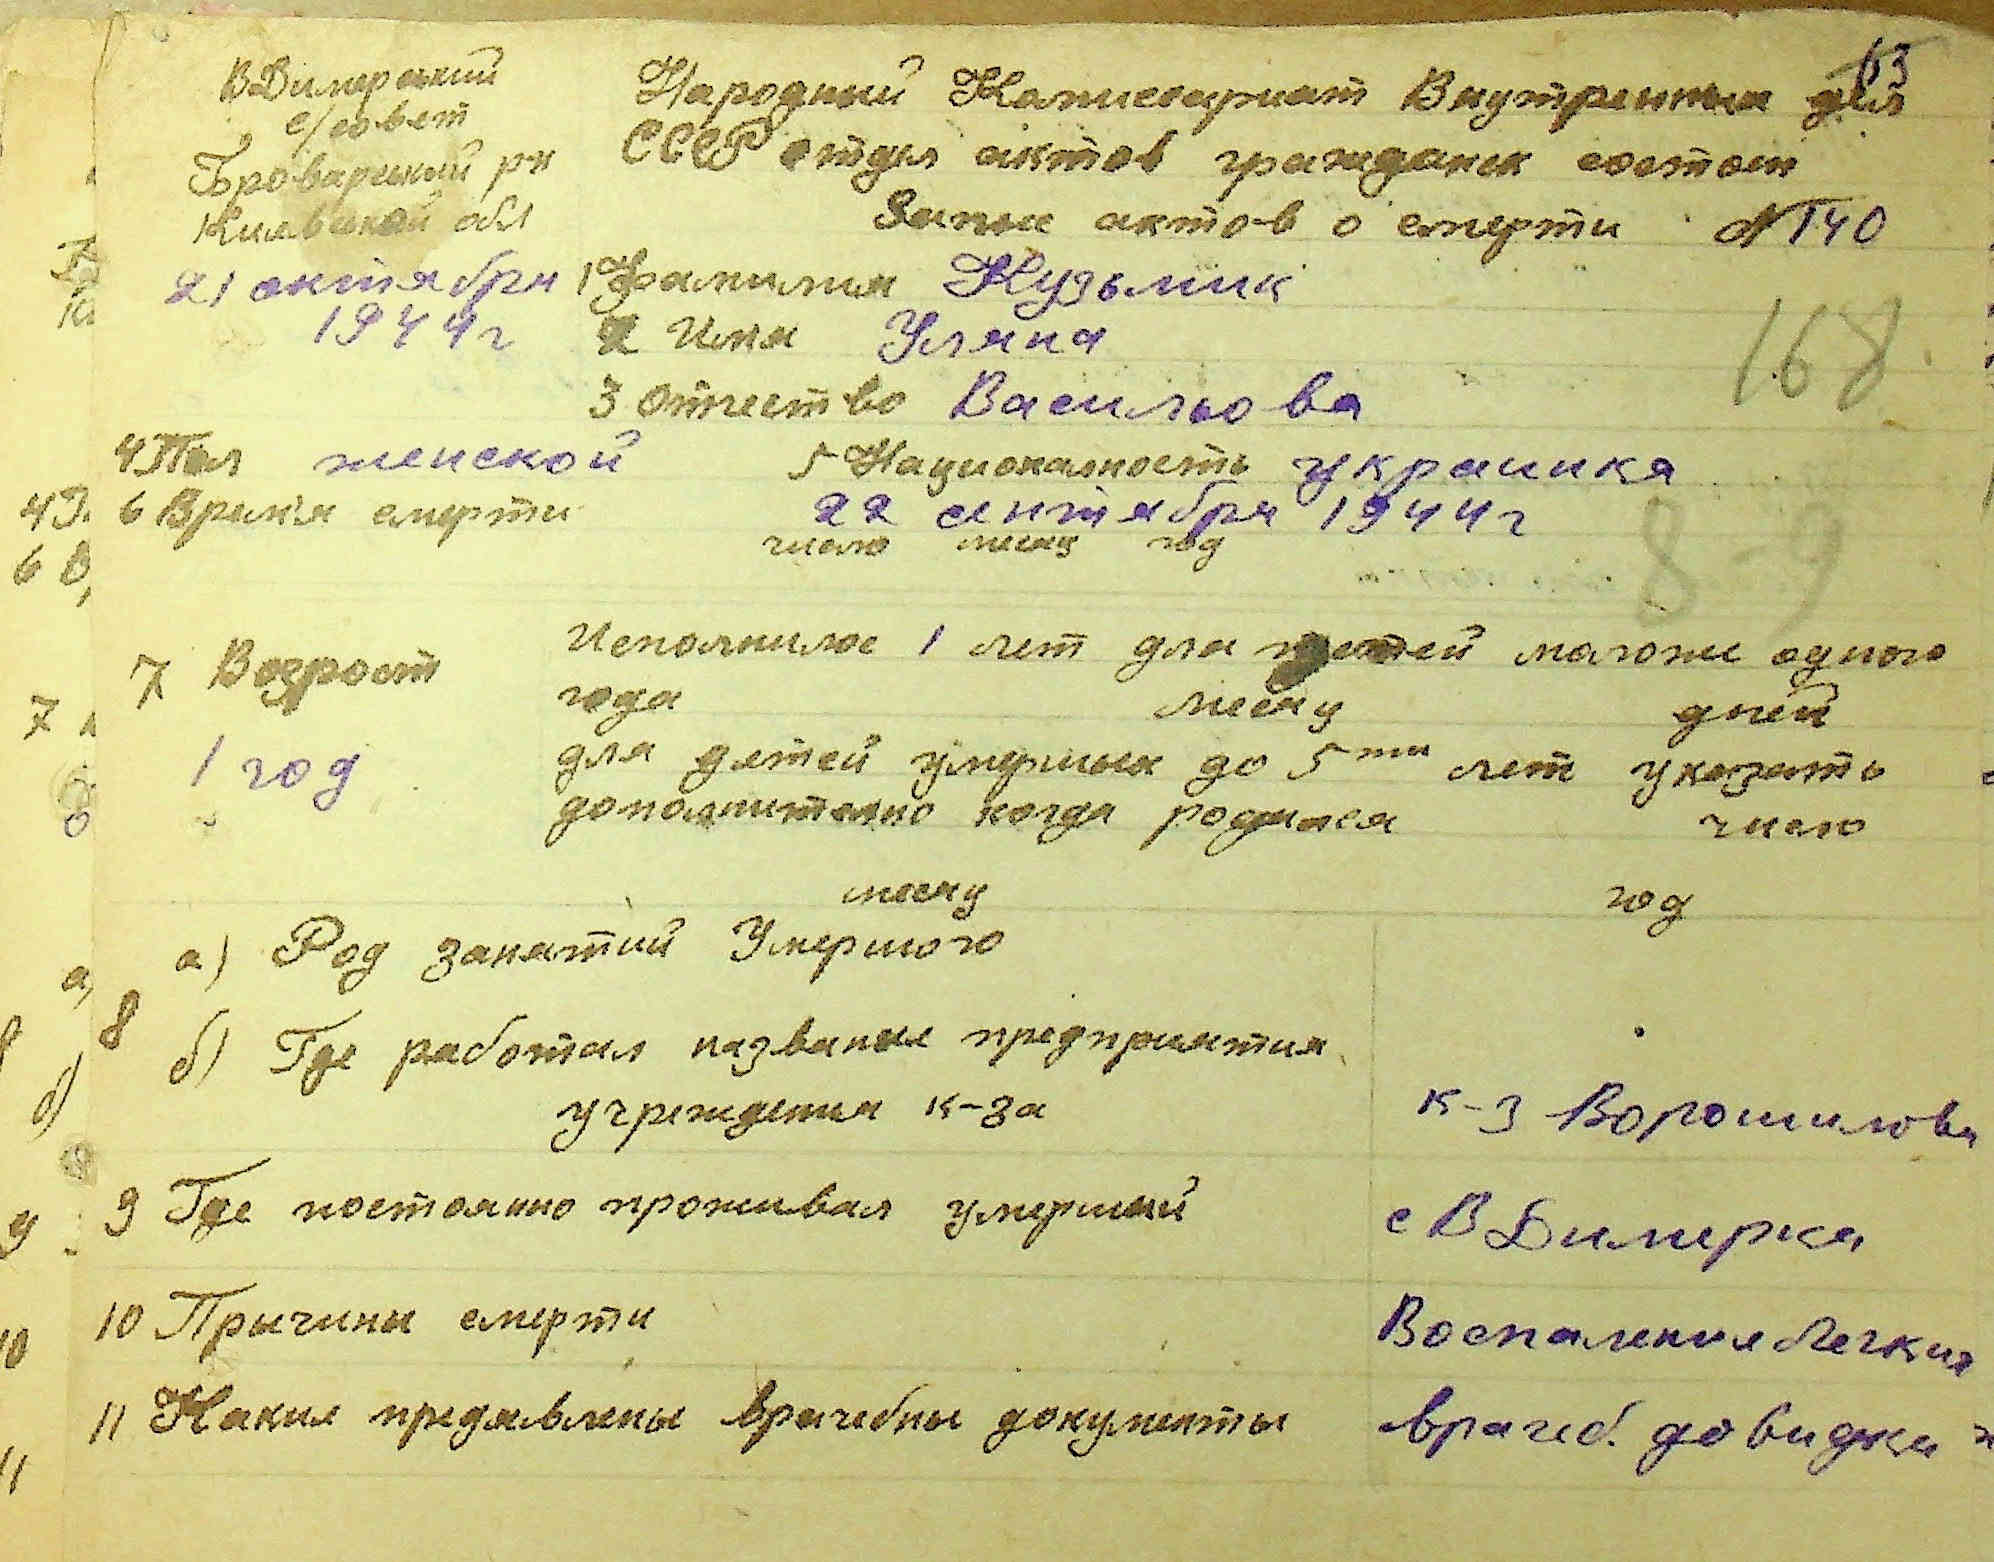 В Димерский
с/совет
Броварский рн
Киивской обл
21 октября
1944 г
Народный Комисариат Внутренных дел
СССР отдел актов гражданск состоян
Запис актов о смерти N 140
1 Фамилия Кузьмик
2 Имя Уляна
168
3 Отчество Васильова
4 Пол женской 5 Националность украинка
6 Время смерти 22 сентября 1944 г
число месяц год
8-9
7 Возраст Исполнилос 1 лет для детей моложе одного
года месяц дней
1 год для детей умерших до 5ти лет указать
дополнително когда родился число
месяц год
а) Род занятий Умершого
8 б) Где работал название предприятия
учреждения к-за к-з Ворошилова
9 Где постоянно проживал умерший с В Димерка
10 Причины смерти Воспаления Легких
11 Какие предявлены врачебны документы врачеб. довидка